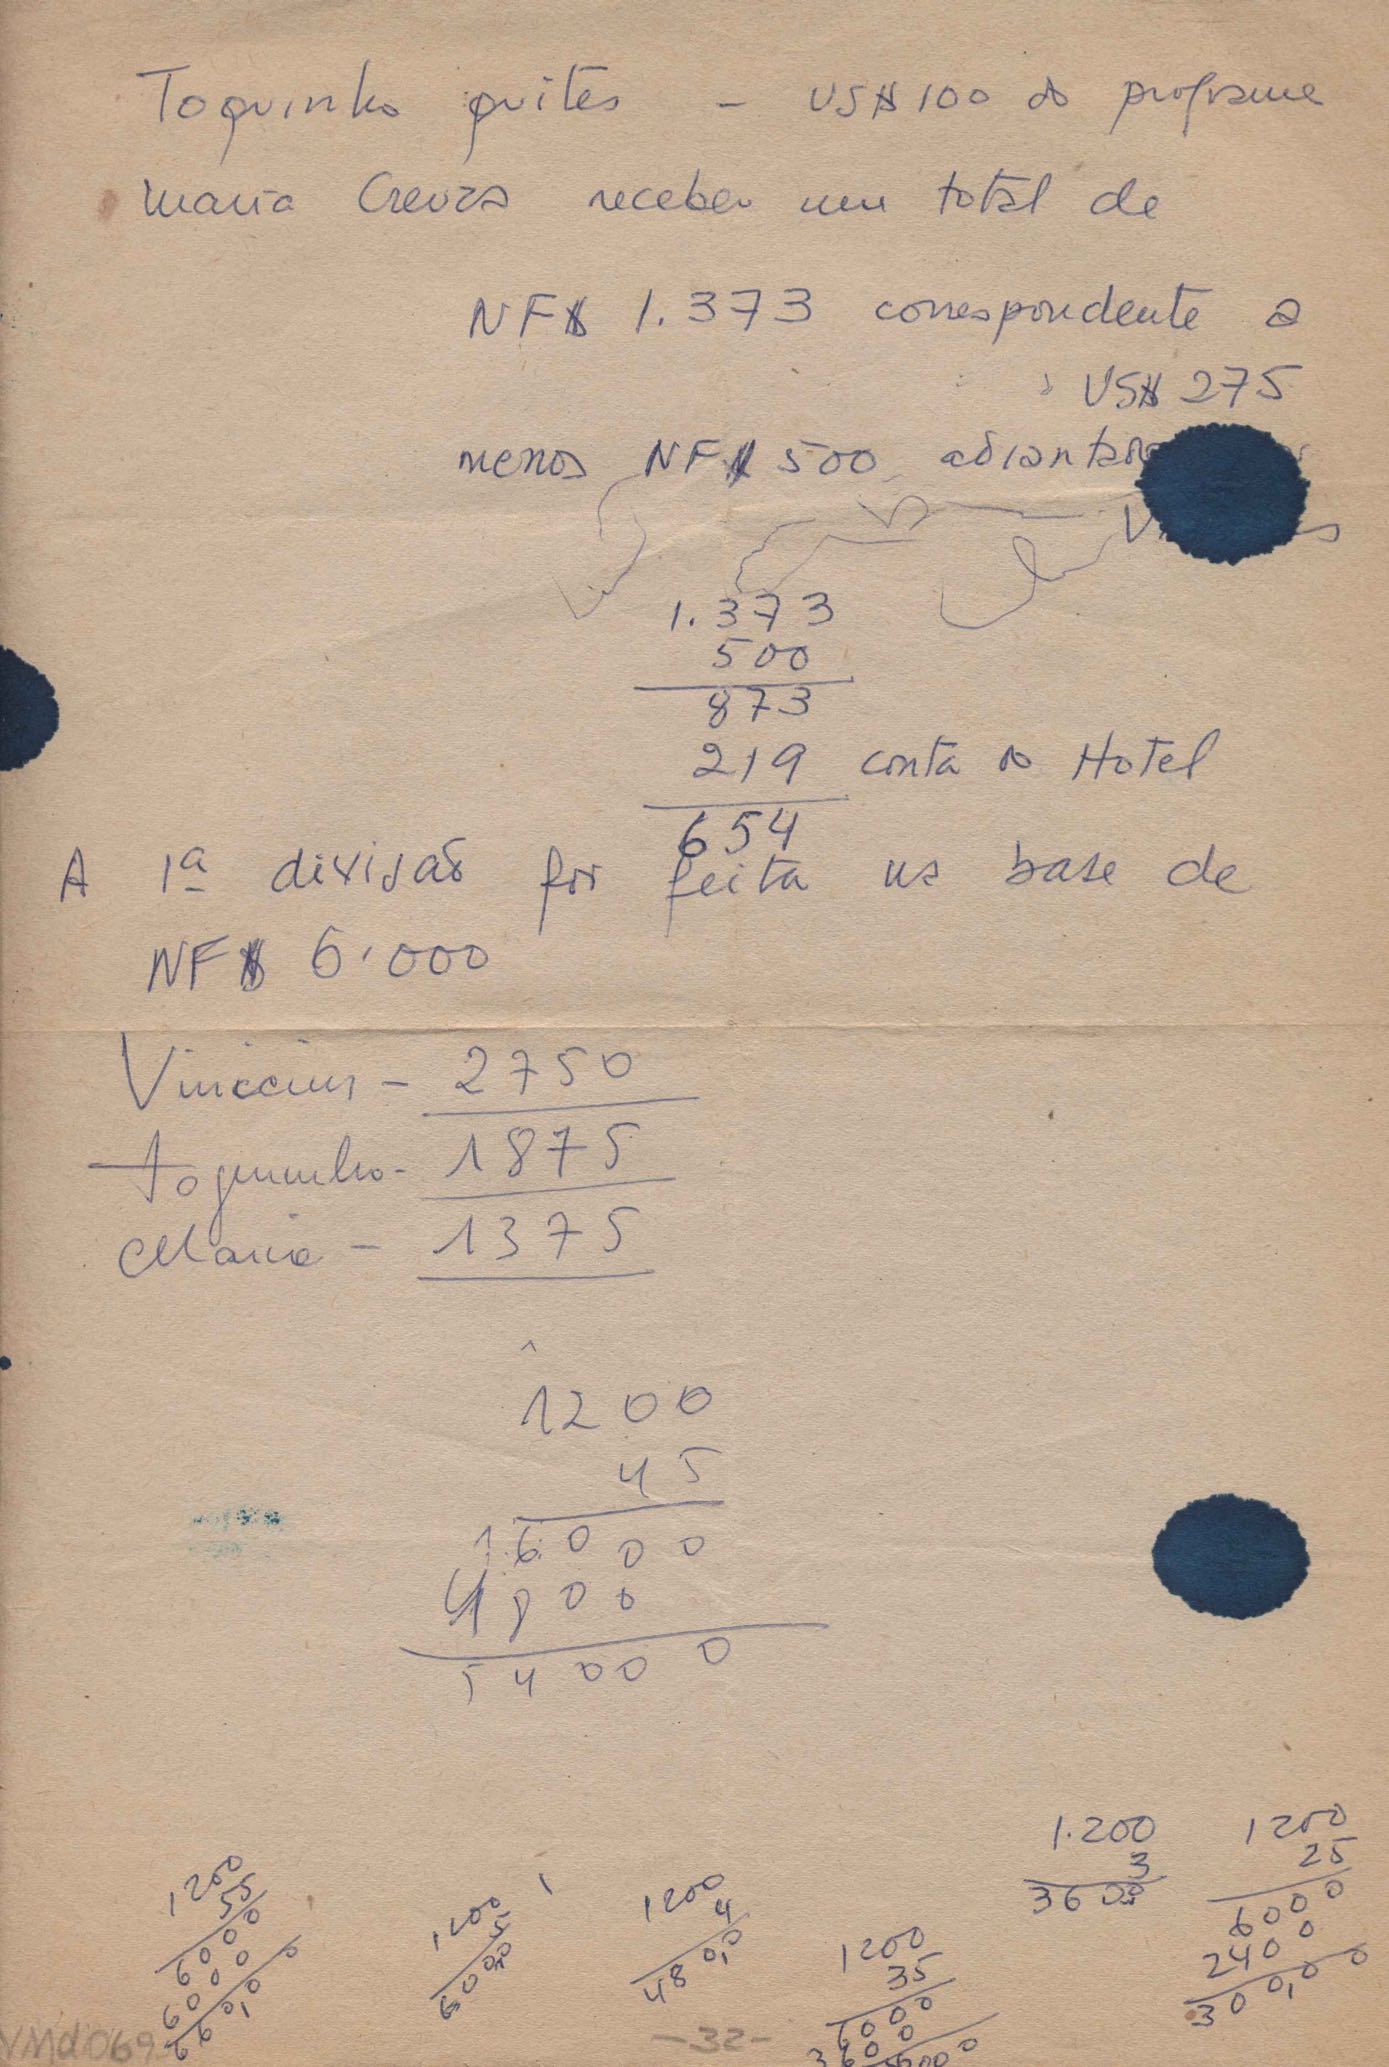 Toquinho quites - US$ 100 do programa
Maria Creuza recebeu um total de
NF$ 1.373 correspondente a
US$ 275
menos NF$ 500
1.373
500
873
219 conta do Hotel
654
A 1ª divisão foi feita na base de
NF$ 6.000
Vinicius - 2750
Toquinho - 1875
Maria - 1375
1200
45
16000
4800
54000
1.200
3
3600
1200
25
6000
2400
300,00
1200
55
6000
6000
660,0
1200
5
6000
1200
4
480,0
1200
35
6000
3600
- 32 -
VMd069